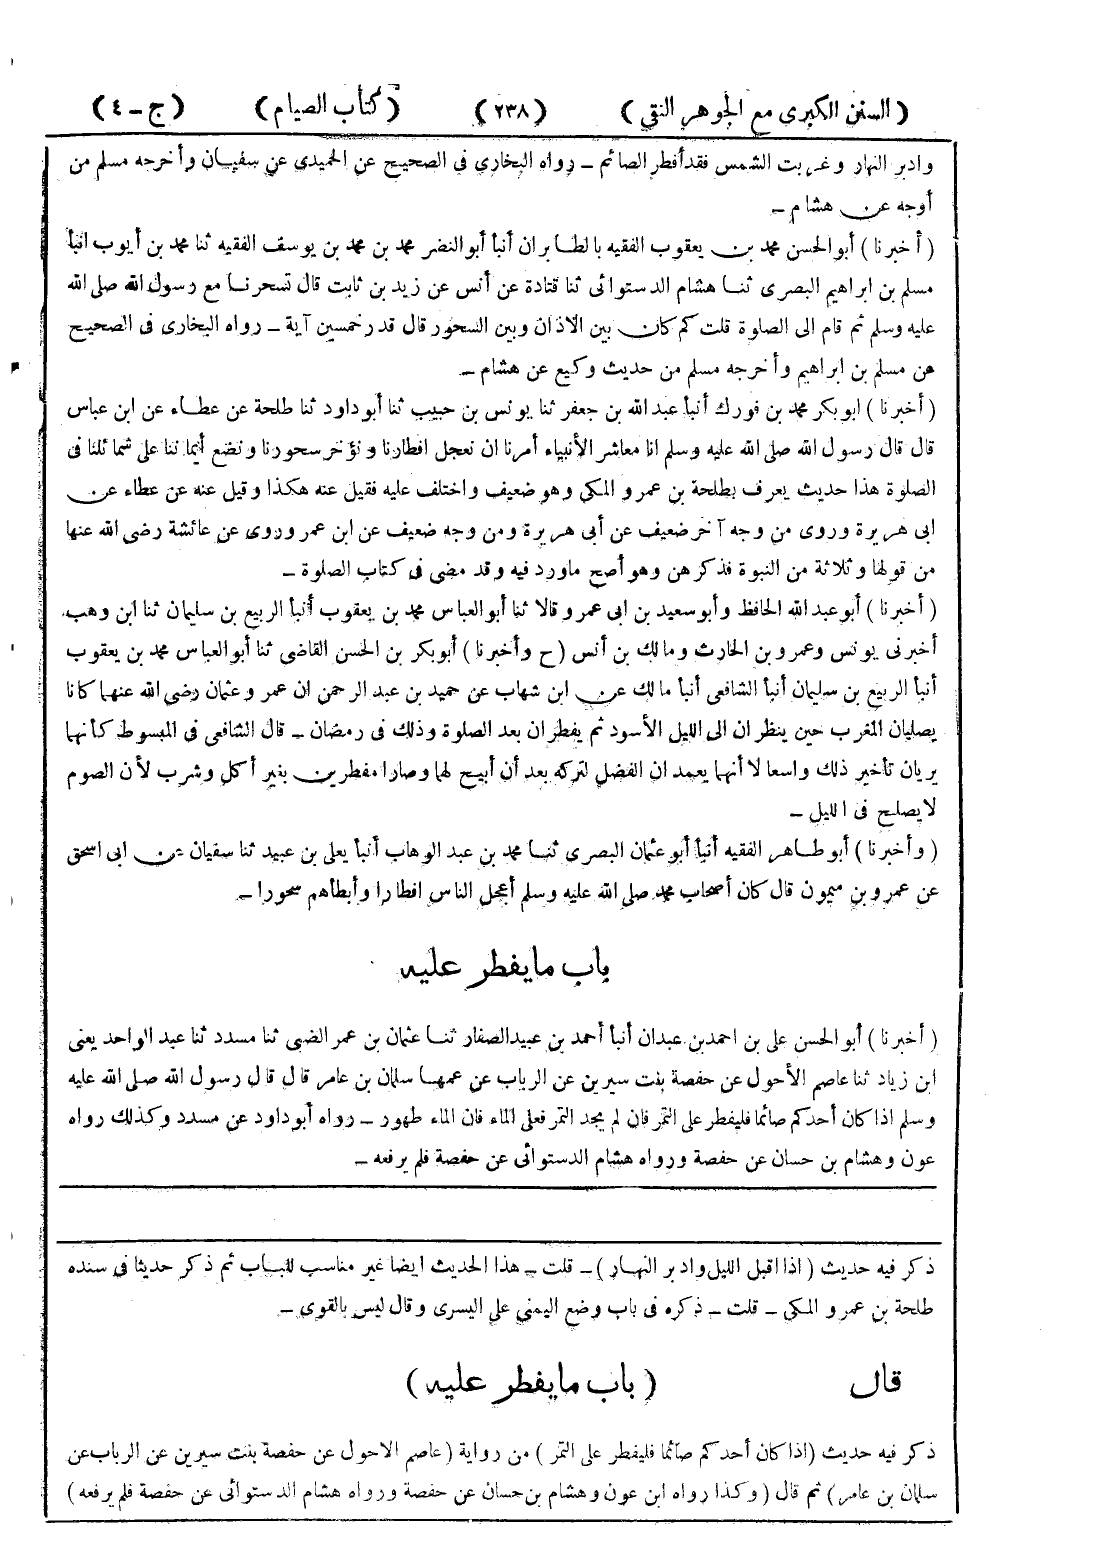 (السنن الكبرى مع الجوهر النقي) (٢٣٨) (كتاب الصيام) (ج - ٤)
وادبر النهار وغربت الشمس فقد أفطر الصائم - رواه البخارى فى الصحيح عن الحميدى عن سفيان وأخرجه مسلم من
أوجه عن هشام -
(أخبرنا) أبو الحسن محمد بن يعقوب الفقيه بالطابران أنبأ أبو النضر محمد بن محمد بن يوسف الفقيه ثنا محمد بن أيوب انبأ
مسلم بن ابراهيم البصرى ثنا هشام الدستوائى ثنا قتادة عن أنس عن زيد بن ثابت قال تسحرنا مع رسول الله صلى الله
عليه وسلم ثم قام الى الصلوة قلت كم كان بين الاذان وبين السحور قال قدر خمسين آية - رواه البخارى فى الصحيح
عن مسلم بن ابراهيم وأخرجه مسلم من حديث وكيع عن هشام -
(أخبرنا) ابو بكر محمد بن فورك أنبأ عبد الله بن جعفر ثنا يونس بن حبيب ثنا أبو داود ثنا طلحة عن عطاء عن ابن عباس
قال قال رسول الله صلى الله عليه وسلم انا معاشر الأنبياء أمرنا ان نعجل افطارنا ونؤخر سحورنا ونضع أيماننا على شمائلنا فى
الصلوة هذا حديث يعرف بطلحة بن عمرو المكى وهو ضعيف واختلف عليه فقيل عنه هكذا وقيل عنه عن عطاء عن
ابى هريرة وروى من وجه آخر ضعيف عن أبى هريرة ومن وجه ضعيف عن ابن عمر وروى عن عائشة رضى الله عنها
من قولها وثلاثة من النبوة فذكرهن وهو أصح ماورد فيه وقد مضى فى كتاب الصلوة -
(أخبرنا) أبو عبد الله الحافظ وأبو سعيد بن ابى عمرو قالا ثنا أبو العباس محمد بن يعقوب أنبأ الربيع بن سليمان ثنا ابن وهب
أخبرنى يونس وعمرو بن الحارث ومالك بن أنس (ح وأخبرنا) أبو بكر بن الحسن القاضى ثنا أبو العباس محمد بن يعقوب
أنبأ الربيع بن سليمان أنبأ الشافعى أنبأ مالك عن ابن شهاب عن حميد بن عبد الرحمن ان عمر وعثمان رضى الله عنهما كانا
يصليان المغرب حين ينظران الى الليل الأسود ثم يفطران بعد الصلوة وذلك فى رمضان - قال الشافعى فى المبسوط كأنهما
يريان تأخير ذلك واسعا لا أنهما يعمدان الفضل لتركه بعد أن أبيح لهما وصارا مفطرين بغير أكل وشرب لأن الصوم
لا يصلح فى الليل -
(وأخبرنا) أبو طاهر الفقيه أنبأ أبو عثمان البصرى ثنا محمد بن عبد الوهاب أنبأ يعلى بن عبيد ثنا سفيان عن ابى اسحق
عن عمرو بن ميمون قال كان أصحاب محمد صلى الله عليه وسلم أعجل الناس افطارا وأبطأهم سحورا -
باب ما يفطر عليه
(أخبرنا) أبو الحسن على بن احمد بن عبدان أنبأ أحمد بن عبيد الصفار ثنا عثمان بن عمر الضبى ثنا مسدد ثنا عبد الواحد يعنى
ابن زياد ثنا عاصم الأحول عن حفصة بنت سيرين عن الرباب عن عمها سلمان بن عامر قال قال رسول الله صلى الله عليه
وسلم اذا كان أحدكم صائما فليفطر على التمر فان لم يجد التمر فعلى الماء فان الماء طهور - رواه أبو داود عن مسدد وكذلك رواه
عون وهشام بن حسان عن حفصة ورواه هشام الدستوائى عن حفصة فلم يرفعه -
ذكر فيه حديث (اذا اقبل الليل وادبر النهار) - قلت - هذا الحديث ايضا غير مناسب للباب ثم ذكر حديثا فى سنده
طلحة بن عمرو المكى - قلت - ذكره فى باب وضع اليمنى على اليسرى وقال ليس بالقوى -
قال (باب ما يفطر عليه)
ذكر فيه حديث (اذا كان أحدكم صائما فليفطر على التمر) من رواية (عاصم الاحول عن حفصة بنت سيرين عن الرباب عن
سلمان بن عامر) ثم قال (وكذا رواه ابن عون وهشام بن حسان عن حفصة ورواه هشام الدستوائى عن حفصة فلم يرفعه)